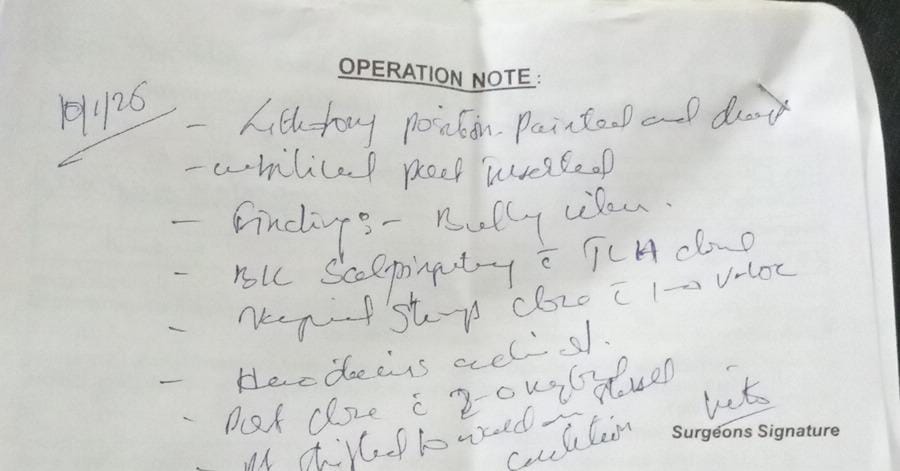 OPERATION NOTE:
10/1/26
- Lithotomy position. painted and drapt
- umbilical port inserted
- Findings:- Bulky uterus.
- B/L Salpingectomy c̄ TLH done
- Vaginal Stump close c̄ 1-0 vicryl
- Haemostasis achieved.
- Port close c̄ 2-0
- Pt shifted to ward in stable
condition
Surgeons Signature